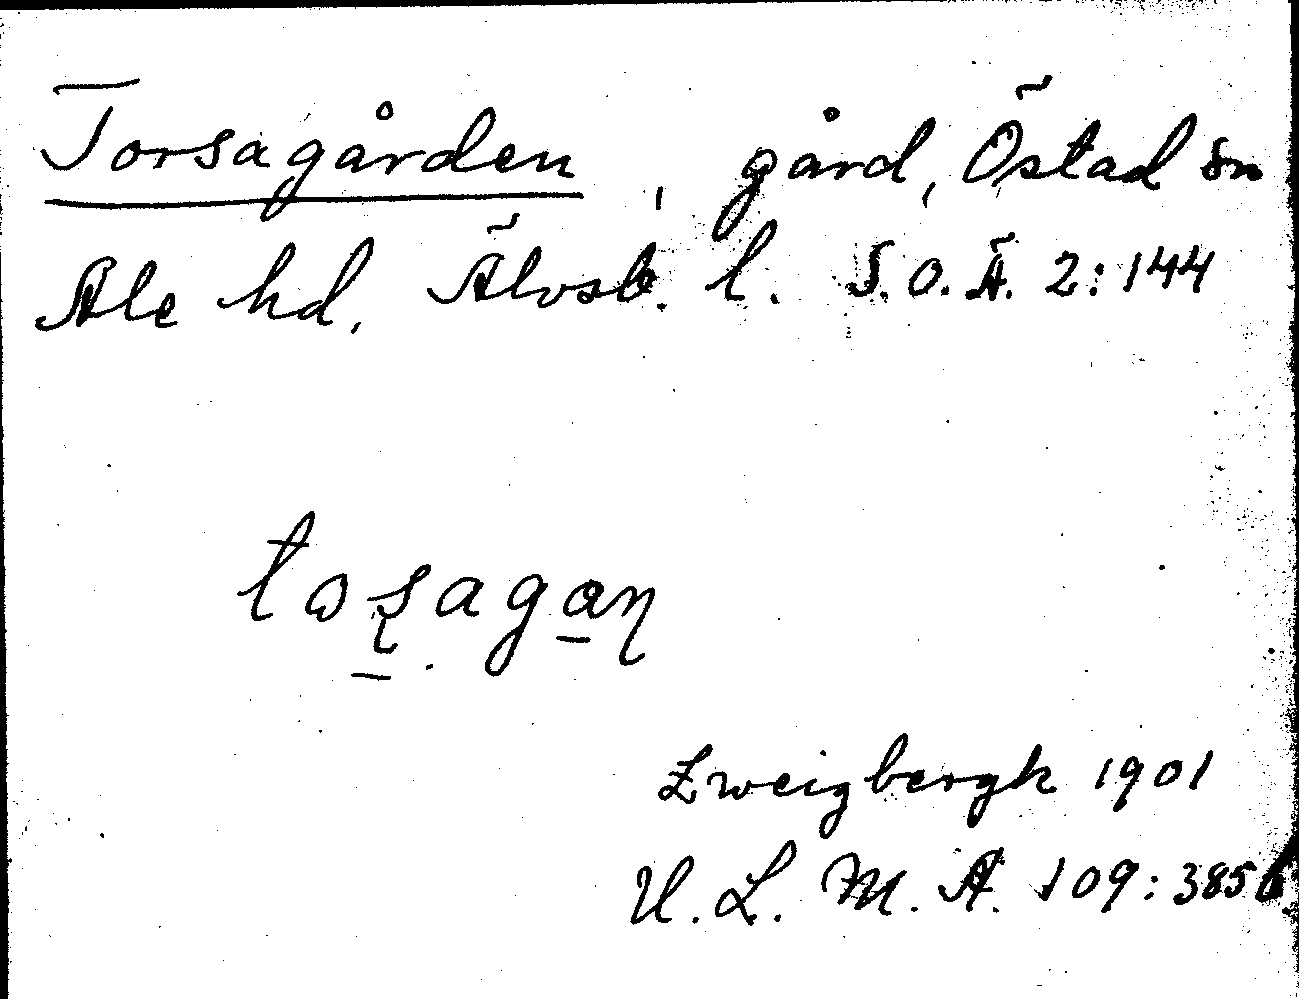 Torsagården, gård, Östad sn
Ale hd. Älvsb. l. S.O.Ä. 2:144
Zweigbergk 1901
U.L.M.A. 109:385b